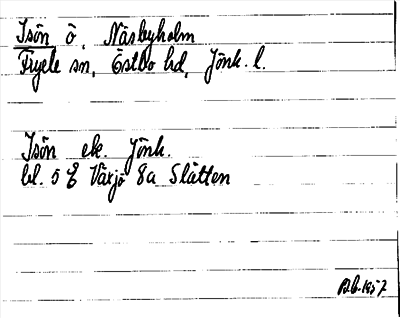 Isön ö, Näsbyholm
Fryele sn, Östbo hd, Jönk. l.
Isön ek. Jönk.
bl. 5 E Växjö 8a Slätten
1957